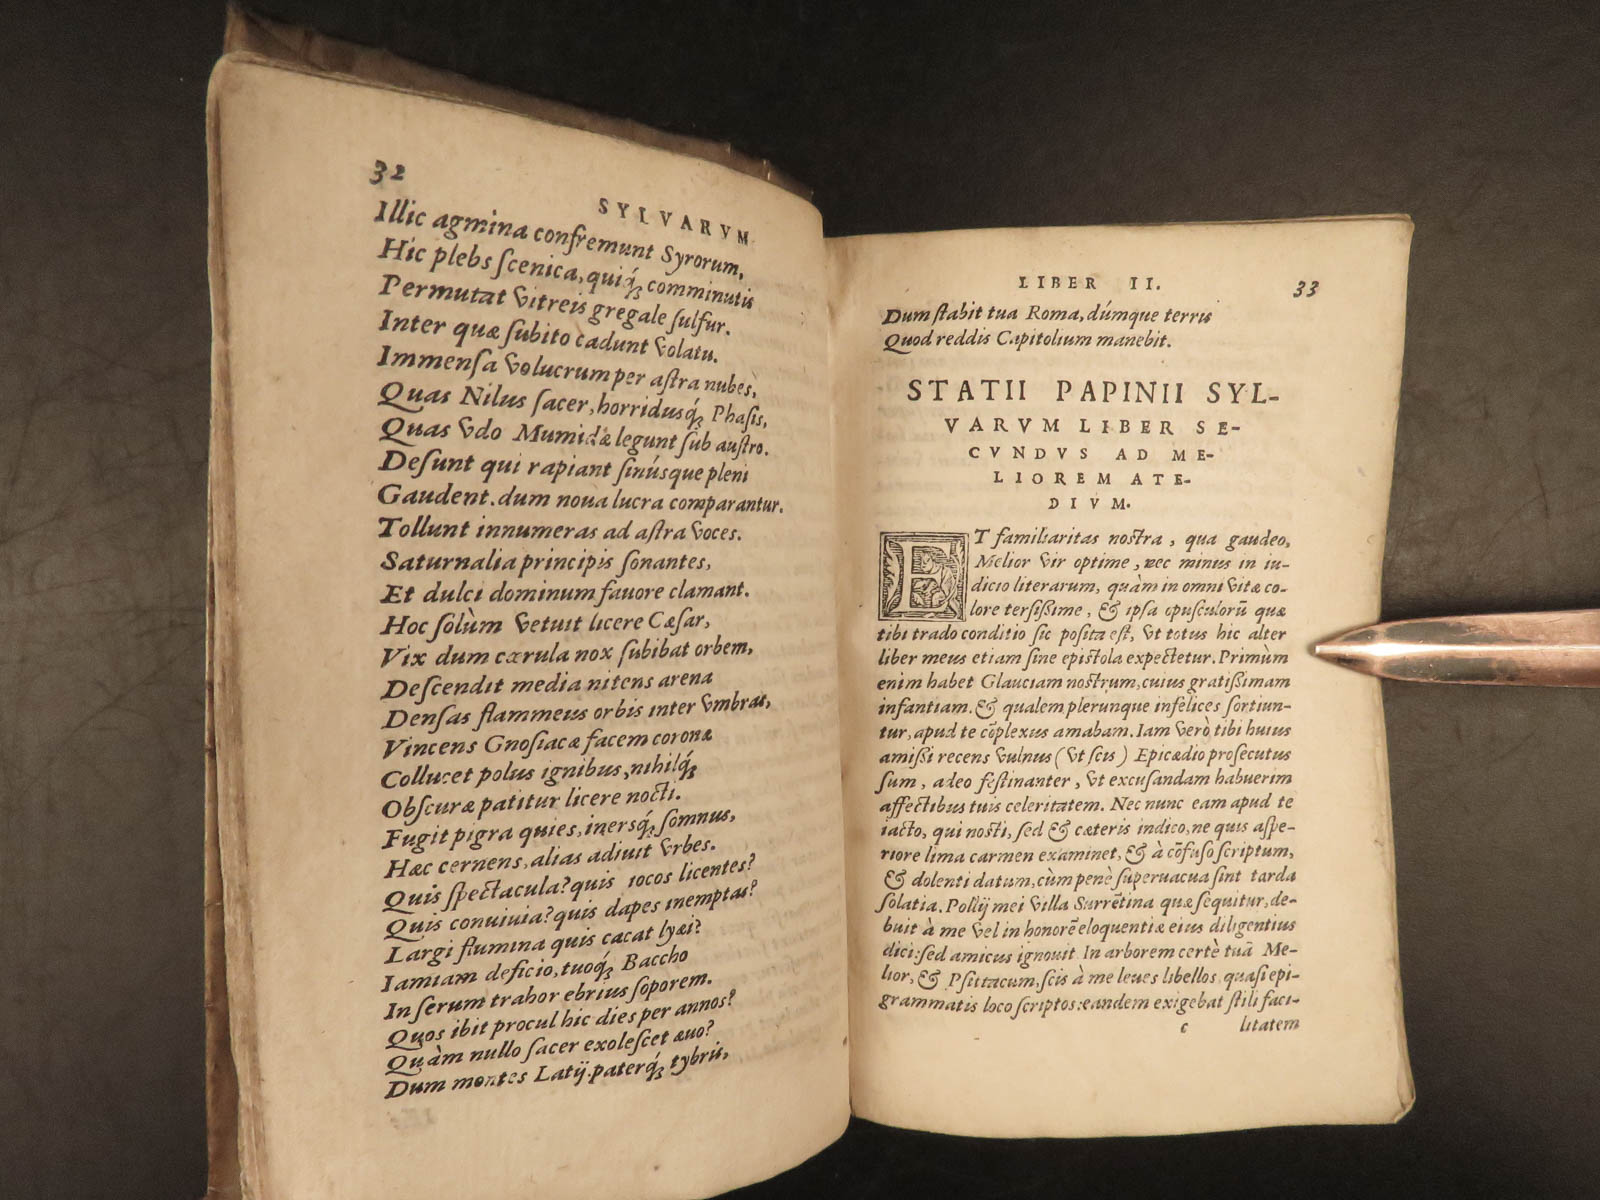 32
SYLVARVM
Illic agmina confremunt Syrorum,
Hic plebs scenica, quiq́; comminutis
Permutat vitreis gregale sulfur.
Inter quæ subito cadunt volatu.
Immensa volucrum per astra nubes,
Quas Nilus sacer, horridusq́; Phasis,
Quas vdo Mumidæ legunt sub austro.
Desunt qui rapiant sinúsque pleni
Gaudent. dum noua lucra comparantur.
Tollunt innumeras ad astra voces.
Saturnalia principis sonantes,
Et dulci dominum fauore clamant.
Hoc solùm vetuit licere Cæsar,
Vix dum cærula nox subibat orbem,
Descendit media nitens arena
Densas flammeus orbis inter vmbras,
Vincens Gnosiacæ facem coronæ
Collucet polus ignibus, nihilq́;
Obscuræ patitur licere nocti.
Fugit pigra quies, inersq́; somnus,
Hæc cernens, alias adiuit vrbes.
Quis spectacula? quis iocos licentes?
Quis conuiuia? quis dapes inemptas?
Largi flumina quis cacat lyæi?
Iamiam deficio, tuoq́; Baccho
In serum trahor ebrius soporem.
Quos ibit procul hic dies per annos?
Quàm nullo sacer exolescet æuo?
Dum montes Latij. paterq́; tybris,
LIBER II.
33
Dum stabit tua Roma, dúmque terris
Quod reddis Capitolium manebit.
STATII PAPINII SYL-
VARVM LIBER SE-
CVNDVS AD ME-
LIOREM ATE-
DIVM.
ET familiaritas nostra, qua gaudeo,
Melior vir optime, nec minus in iu-
dicio literarum, quàm in omni vitæ co-
lore tersißime, & ipsa opusculorũ quæ
tibi trado conditio sic posita est, vt totus hic alter
liber meus etiam sine epistola expectetur. Primùm
enim habet Glauciam nostrum, cuius gratißimam
infantiam. & qualem plerunque infelices sortiun-
tur, apud te cõplexus amabam. Iam verò tibi huius
amißi recens vulnus (vt scis) Epicædio prosecutus
sum, adeo festinanter, vt excusandam habuerim
affectibus tuis celeritatem. Nec nunc eam apud te
iacto, qui nosti, sed & cæteris indico, ne quis aspe-
riore lima carmen examinet, & à cõfuso scriptum,
& dolenti datum, cùm penè superuacua sint tarda
solatia. Pollij mei villa Surrẽtina quæ sequitur, de-
buit à me vel in honorẽ eloquentiæ eius diligentius
dici: sed amicus ignouit. In arborem certè tuã Me-
lior, & Psittacum, scis à me leues libellos, quasi epi-
grammatis loco scriptos: eandem exigebat stili faci-
c
litatem